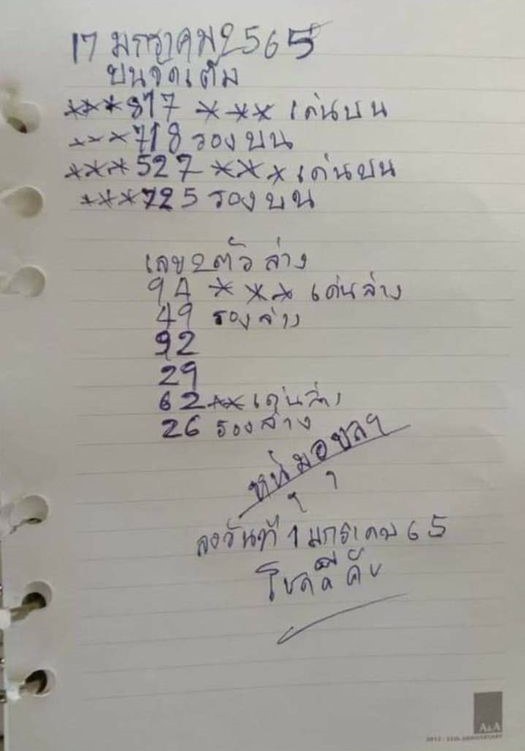 17 มกราคม 2565
บนจัดเต็ม
***817 *** เด่นบน
***718 รองบน
***527 *** เด่นบน
***725 รองบน
เลข 2 ตัว ล่าง
94 *** เด่นล่าง
49 รองล่าง
92
29
62** เด่นล่าง
26 รองล่าง
ลงวันที่ 1 มกราคม 65
โชคดีคับ
A&A